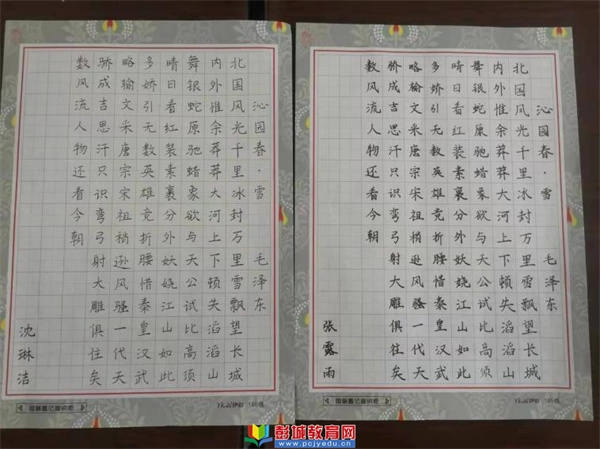 沁园春·雪 毛泽东
北国风光千里冰封万里雪飘望长城
内外惟余莽莽大河上下顿失滔滔山
舞银蛇原驰蜡象欲与天公试比高须
晴日看红装素裹分外妖娆江山如此
多娇引无数英雄竞折腰惜秦皇汉武
略输文采唐宗宋祖稍逊风骚一代天
骄成吉思汗只识弯弓射大雕俱往矣
数风流人物还看今朝
沈琳洁
沁园春·雪 毛泽东
北国风光千里冰封万里雪飘望长城
内外惟余莽莽大河上下顿失滔滔山
舞银蛇原驰蜡象欲与天公试比高须
晴日看红装素裹分外妖娆江山如此
多娇引无数英雄竞折腰惜秦皇汉武
略输文采唐宗宋祖稍逊风骚一代天
骄成吉思汗只识弯弓射大雕俱往矣
数风流人物还看今朝
张露雨
彭城教育网
www.pcjyedu.cn